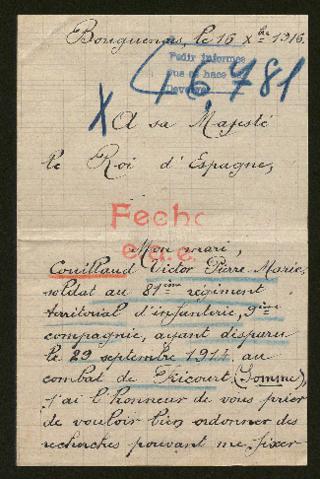 Bouguenais, le 16 Xbre 1916.
Pedir informes
que se hace
6,781
X A sa Majesté
le Roi d'Espagne,
Fecho
Mon mari,
Couillaud Victor Pierre Marie,
soldat au 81ième régiment
territorial d'infanterie, 9ième
compagnie, ayant disparu
le 29 septembre 1914 au
combat de Fricourt (Somme),
j'ai l'honneur de vous prier
de vouloir bien ordonner des
recherches pouvant me fixer